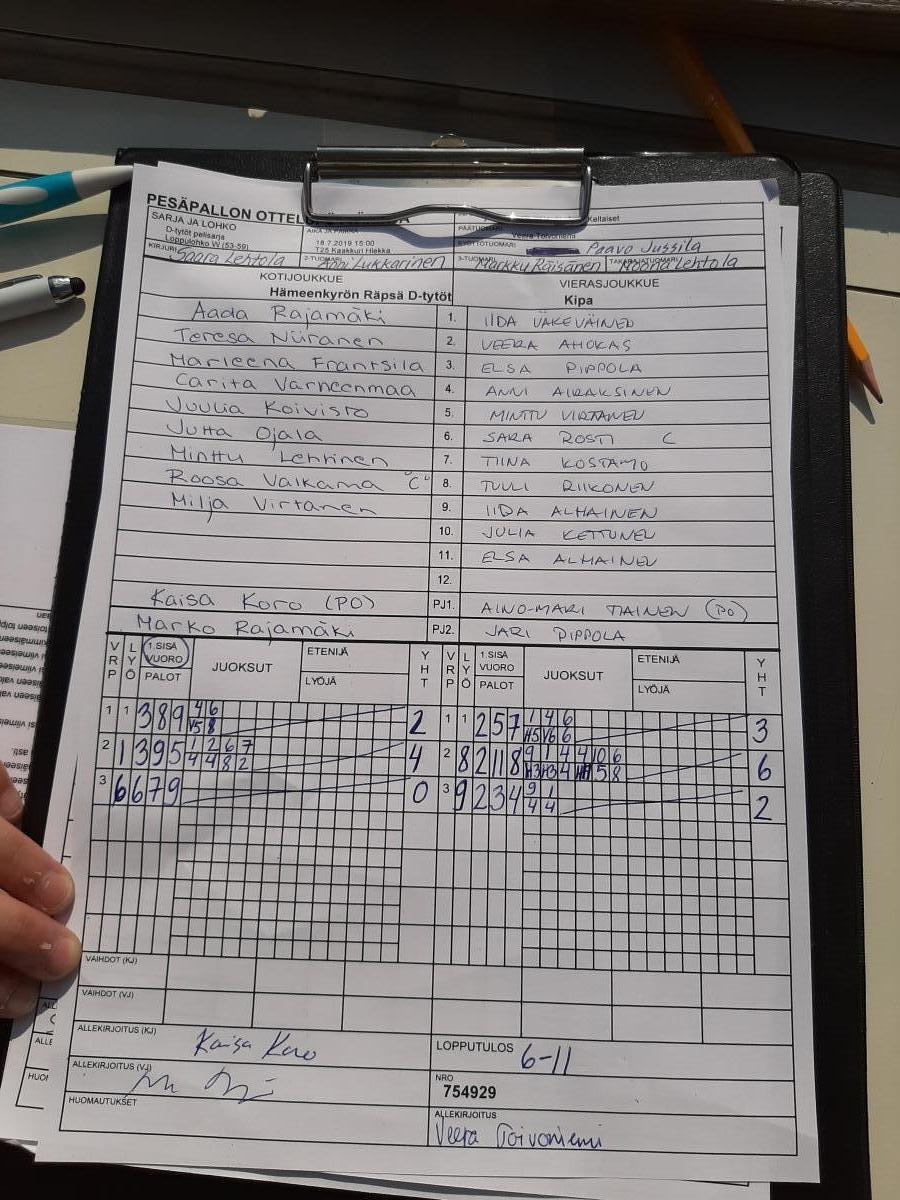 PESÄPALLON
SARJA JA LOHKO
D-tytöt pelisarja
Loppulohko W (53-59)
AIKA JA PAIKKA
18.7.2019 15:00
T25 Kaakkuri Hiekka
Keltaiset
PÄÄTUOMARI
Veera Toivoniemi
SYÖTTÖTUOMARI Paavo Jussila
KIRJURI Saara Lehtola 2-TUOMARI Anni Lukkarinen 3-TUOMARI Markku Räisänen TAKARAJATUOMARI Noona Lehtola
KOTIJOUKKUE VIERASJOUKKUE
Hämeenkyrön Räpsä D-tytöt Kipa
Aada Rajamäki 1. IIDA VÄKEVÄINEN
Teresa Niiranen 2. VEERA AHOKAS
Marleena Frantsila 3. ELSA PIPPOLA
Carita Varheenmaa 4. ANNI AIRAKSINEN
Juulia Koivisto 5. MINTTU VIRTANEN
Jutta Ojala 6. SARA ROSTI C
Minttu Lehtinen 7. TIINA KOSTAMO
Roosa Valkama "C" 8. TUULI RIIKONEN
Milja Virtanen 9. IIDA ALHAINEN
10. JULIA KETTUNEN
11. ELSA ALHAINEN
12.
Kaisa Koro (PO) PJ1. AINO-MARI TIAINEN (PO)
Marko Rajamäki PJ2. JARI PIPPOLA
VRP LYÖ 1.SISÄ VUORO PALOT JUOKSUT ETENIJÄ LYÖJÄ YHT VRP LYÖ 1.SISÄ VUORO PALOT JUOKSUT ETENIJÄ LYÖJÄ YHT
1 1 3 8 9 4 6 2 1 1 2 5 7 1 4 6 3
V5 8 H5 V6 6
2 1 3 9 5 1 2 6 7 4 2 8 2 11 8 9 1 4 4 10 6 6
4 4 8 2
3 6 6 7 9 0 3 9 2 3 4 9 1 2
4 4
VAIHDOT (KJ)
VAIHDOT (VJ)
ALLEKIRJOITUS (KJ) Kaisa Koro
LOPPUTULOS 6-11
ALLEKIRJOITUS (VJ)
NRO
754929
HUOMAUTUKSET
ALLEKIRJOITUS
Veera Toivoniemi